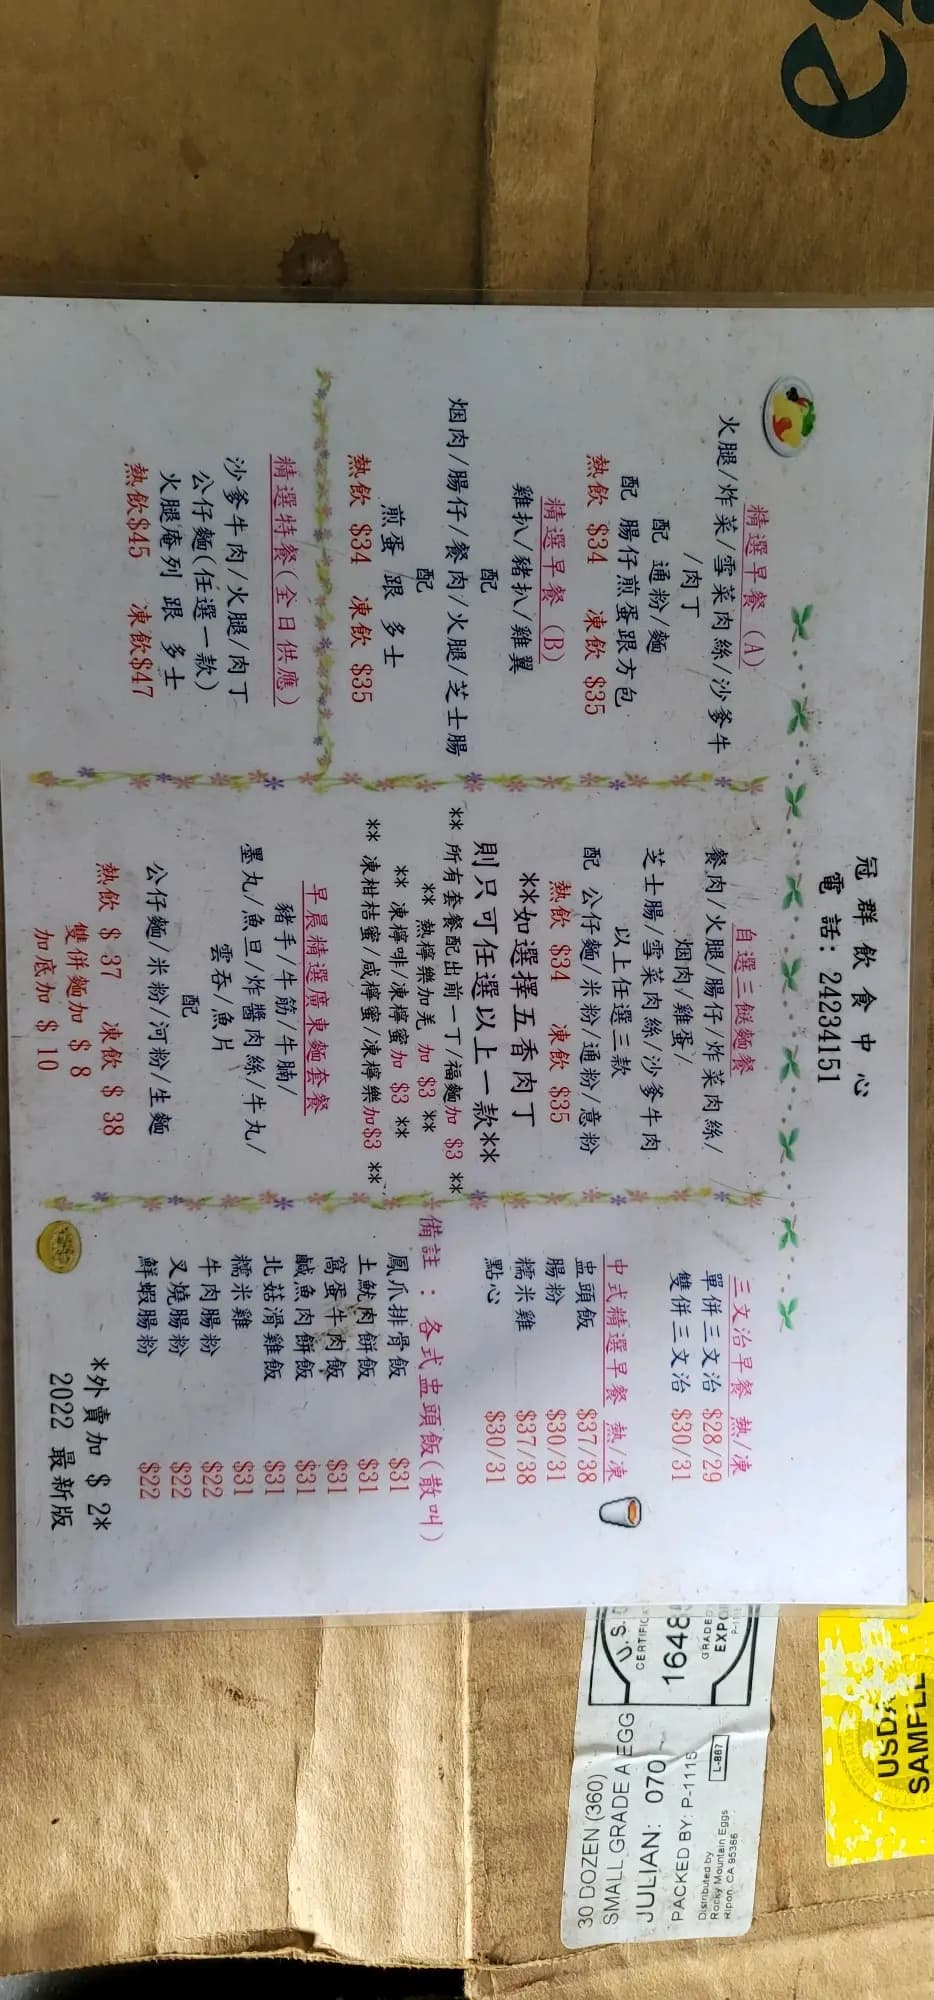 冠群飲食中心
電話: 24234151
精選早餐 (A)
火腿/炸菜/雪菜肉絲/沙爹牛
/肉丁
配 通粉/麵
配 腸仔煎蛋跟方包
熱飲 $34 凍飲 $35
精選早餐 (B)
雞扒/豬扒/雞翼
配
烟肉/腸仔/餐肉/火腿/芝士腸
配
煎蛋 跟 多士
熱飲 $34 凍飲 $35
精選特餐(全日供應)
沙爹牛肉/火腿/肉丁
公仔麵(任選一款)
火腿庵列 跟 多士
熱飲$45 凍飲$47
自選三餸麵餐
餐肉/火腿/腸仔/炸菜肉絲/
烟肉/雞蛋/
芝士腸/雪菜肉絲/沙爹牛肉
以上任選三款
配 公仔麵/米粉/通粉/意粉
熱飲 $34 凍飲 $35
**如選擇五香肉丁
則只可任選以上一款**
** 所有套餐配出前一丁/福麵加 $3 **
** 熱檸樂加羌 加 $3 **
** 凍檸啡/凍檸蜜加 $3 **
** 凍柑桔蜜/咸檸蜜/凍檸樂加$3 **
早晨精選廣東麵套餐
豬手/牛筋/牛腩/
墨丸/魚旦/炸醬肉絲/牛丸/
雲吞/魚片
配
公仔麵/米粉/河粉/生麵
熱飲 $ 37 凍飲 $ 38
雙併麵加 $ 8
加底加 $ 10
三文治早餐 熱/凍
單併三文治 $28/29
雙併三文治 $30/31
中式精選早餐 熱/凍
盅頭飯 $37/38
腸粉 $30/31
糯米雞 $37/38
點心 $30/31
備註 : 各式盅頭飯(散叫)
鳳爪排骨飯 $31
土魷肉餅飯 $31
窩蛋牛肉飯 $31
鹹魚肉餅飯 $31
北菇滑雞飯 $31
糯米雞 $31
牛肉腸粉 $22
叉燒腸粉 $22
鮮蝦腸粉 $22
*外賣加 $ 2*
2022 最新版
U.S.
CERTIFIC
1648
GRADED
EXPO
L-887
30 DOZEN (360)
SMALL GRADE A EGG
JULIAN: 070
PACKED BY: P-1115
Distributed by
Rocky Mountain Eggs
Ripon, CA 95366
USDA
SAMPLE